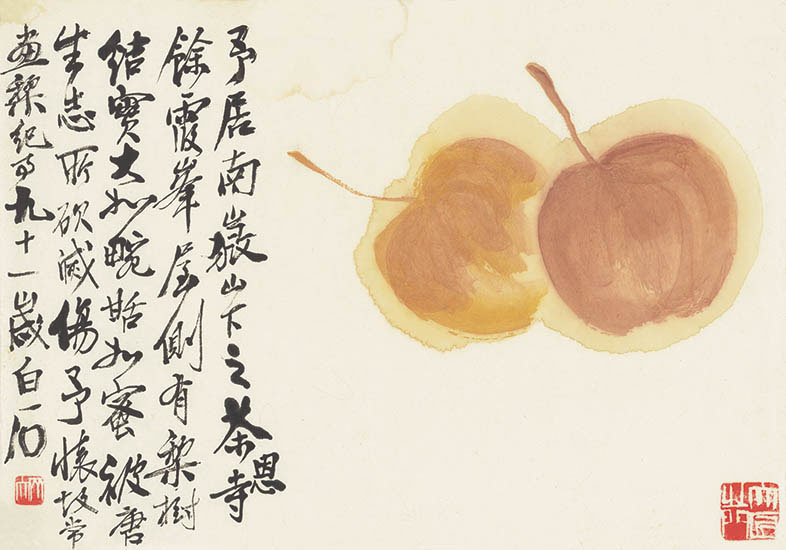 予居南嶽山下之茶恩寺
餘霞峯屋側有梨樹
結實大如畹甜如蜜被唐
生志所砍滅傷予懷故常
畫梨紀事九十一歲白石
大匠之門